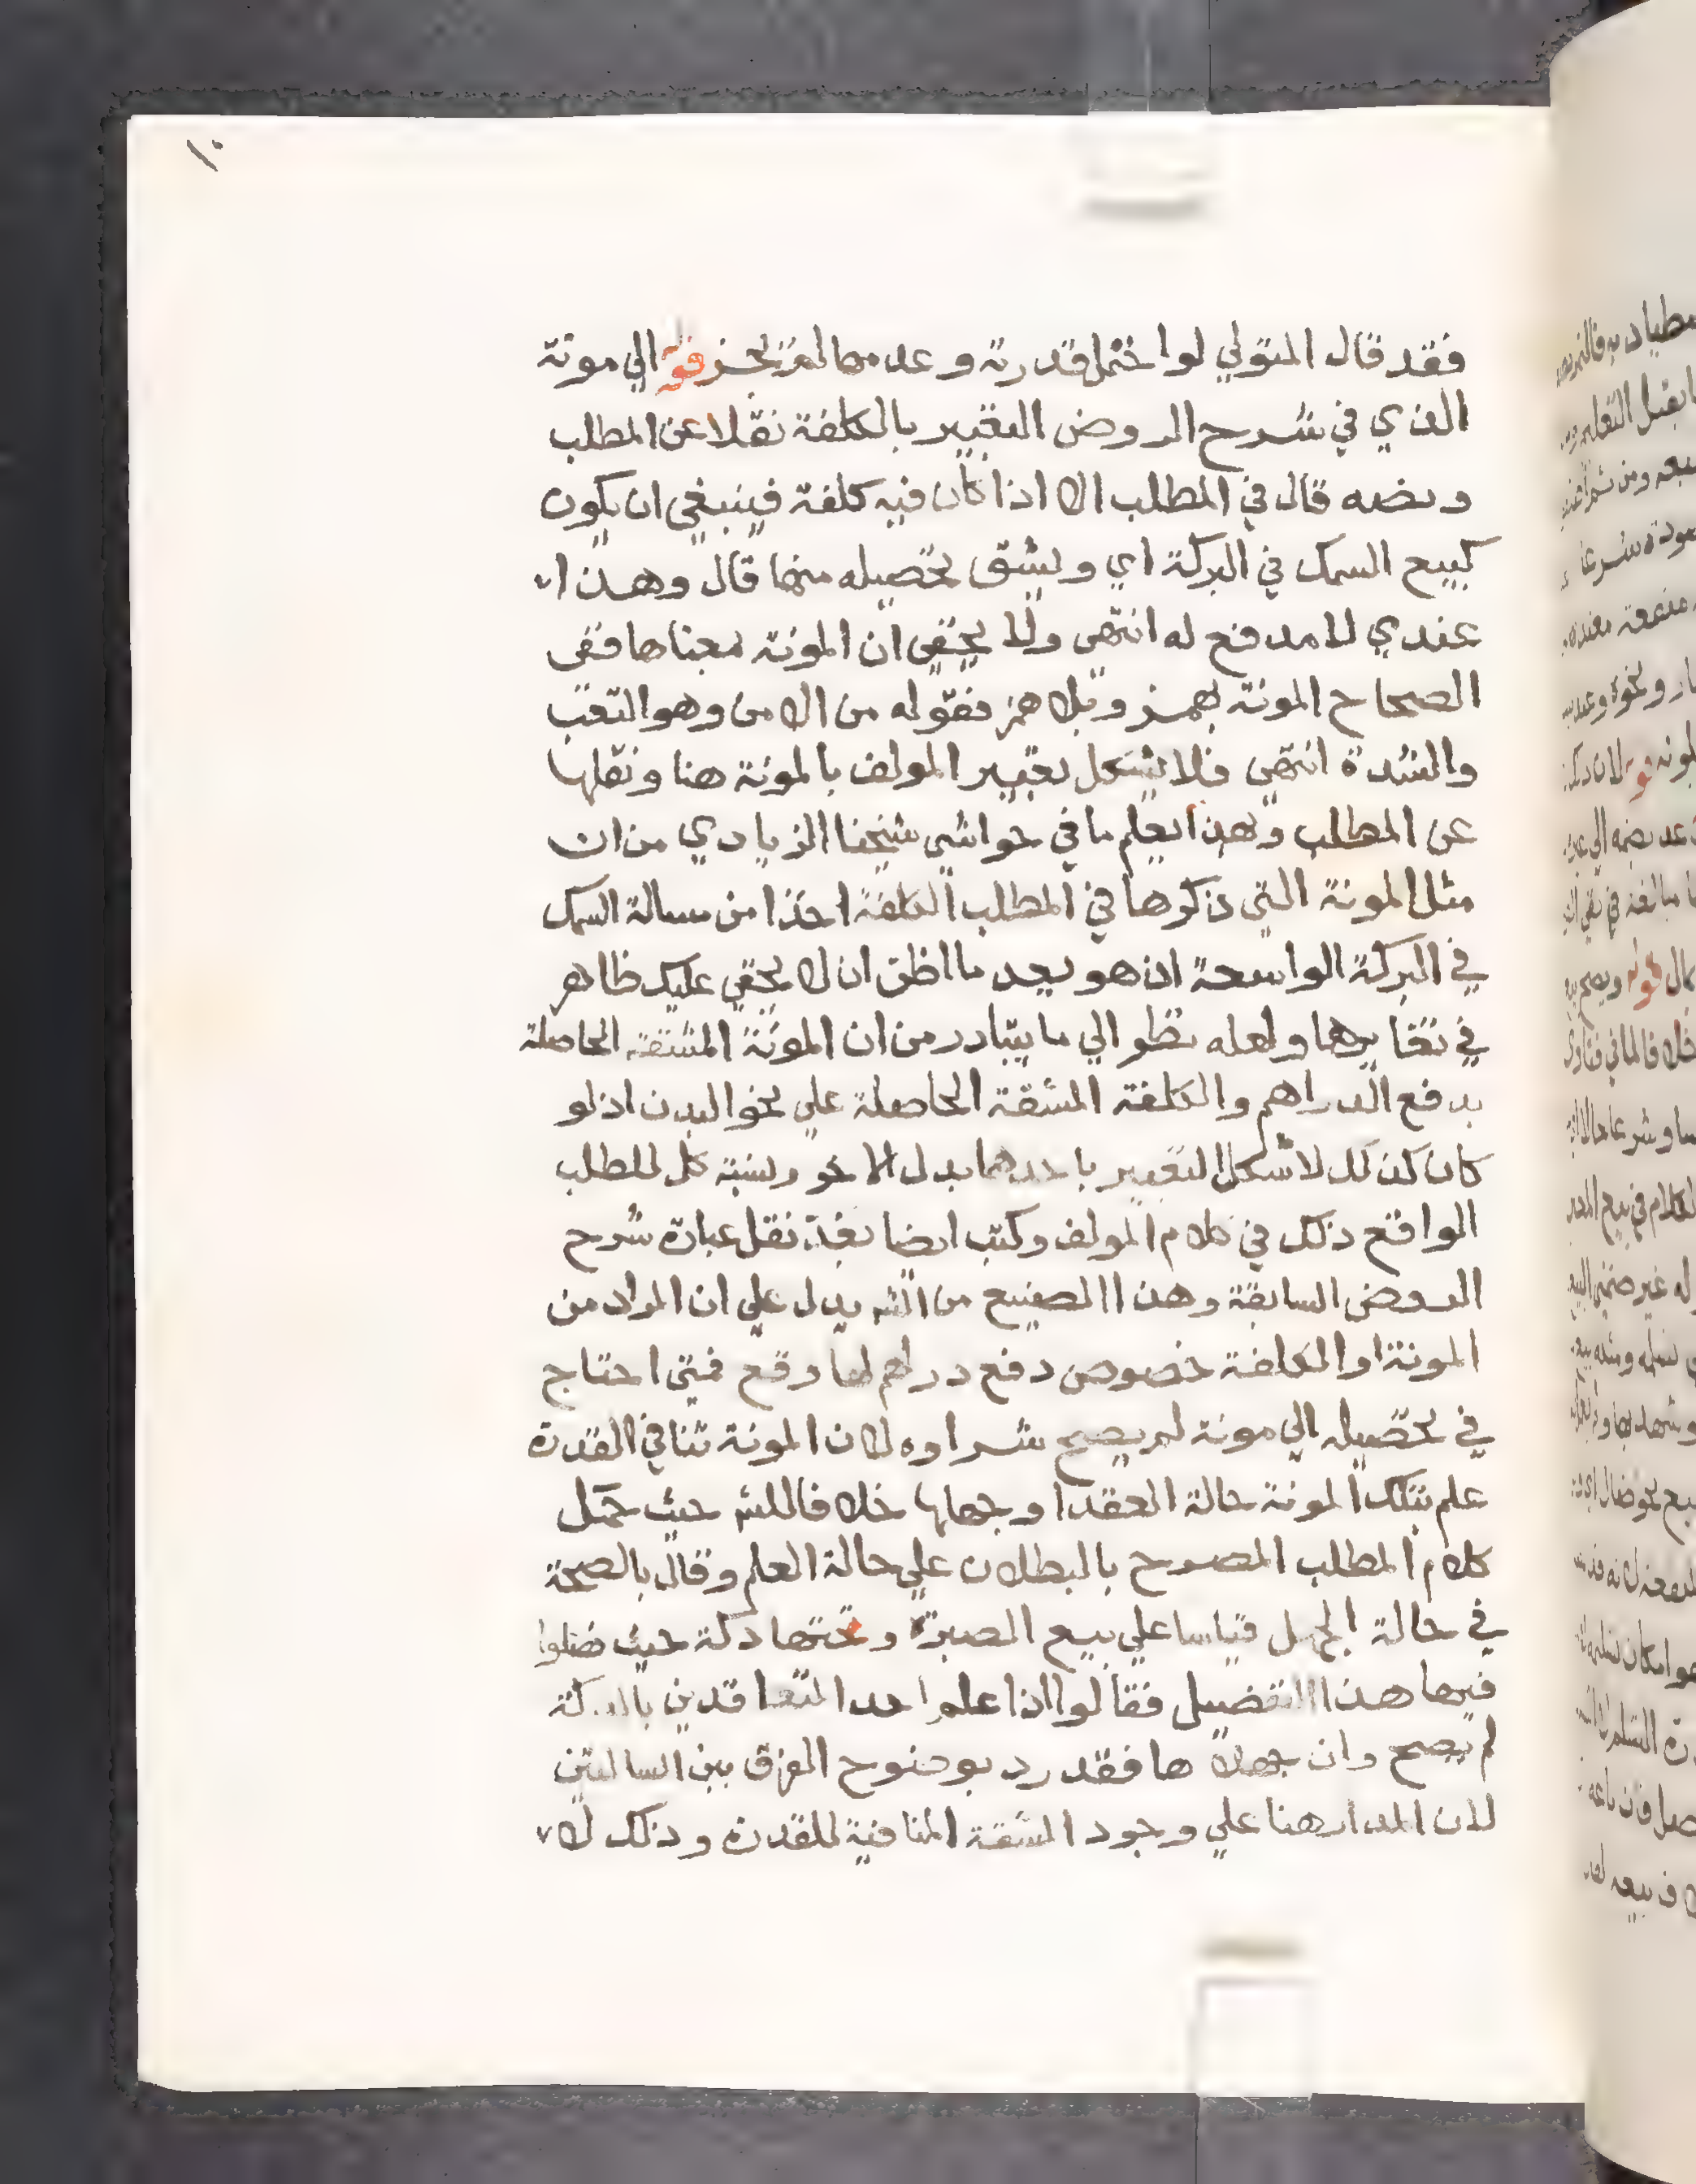 ١٠
فقد قال المتولي لو احتمل قدرته وعدمها لم يجز قوله الي مونة
الذي في شرح الروض التعبير بالكلفة نقلا عن المطلب
ونصه قال في المطلب الا اذا كان فيه كلفة فينبغي ان يكون
كبيع السمك في البركة اي ويشق تحصيله منها قال وهذا
عندي لا مدفع له انتهي ولا يخفي ان المونة بمعناها ففي
الصحاح المونة بهمز وبلا همز فعوله من الامن وهو التعب
والشدة انتهي فلا يشكل تعبير المولف بالمونة هنا ونقلها
عن المطلب وبهذا يعلم ما في حواشي شيخنا الزيادي من ان
مثل المونة التي ذكرها في المطلب الكلفة اخذا من مسالة السمك
في البركة الواسعة اذ هو بعد ما اظن ان لا يخفي عليك ظاهر
في تغايرهما ولعله نظر الي ما يتبادر من ان المونة المشقة الحاصلة
بدفع الدراهم والكلفة المشقة الحاصلة علي نحو البدن اذ لو
كان كذلك لاشكل التعبير باحدهما بدل الاخر ونسبة كل للمطلب
الواقع ذلك في كلام المولف وكتب ايضا بعد نقل عبارة شرح
الروض السابقة وهذا الصنيع من الش يدل علي ان المراد من
المونة او الكلفة خصوص دفع دراهم لها وقع فمتي احتاج
في تحصيله الي مونة لم يصح شراوه لان المونة تنافي القدرة
علم بتلك المونة حالة العقد او جهلها خلافا للش حيث حمل
كلام المطلب المصرح بالبطلان علي حالة العلم وقال بالصحة
في حالة الجهل قياسا علي بيع الصبرة وتحتها دكة حيث فصلوا
فيها هذا التفصيل فقالوا اذا علم احد المتعاقدين بالدكة
لم يصح وان جهلا ها فقد رد بوضوح الفرق بين السالتين
لان المدار هنا علي وجود المشقة المنافية للقدرة وذلك لا